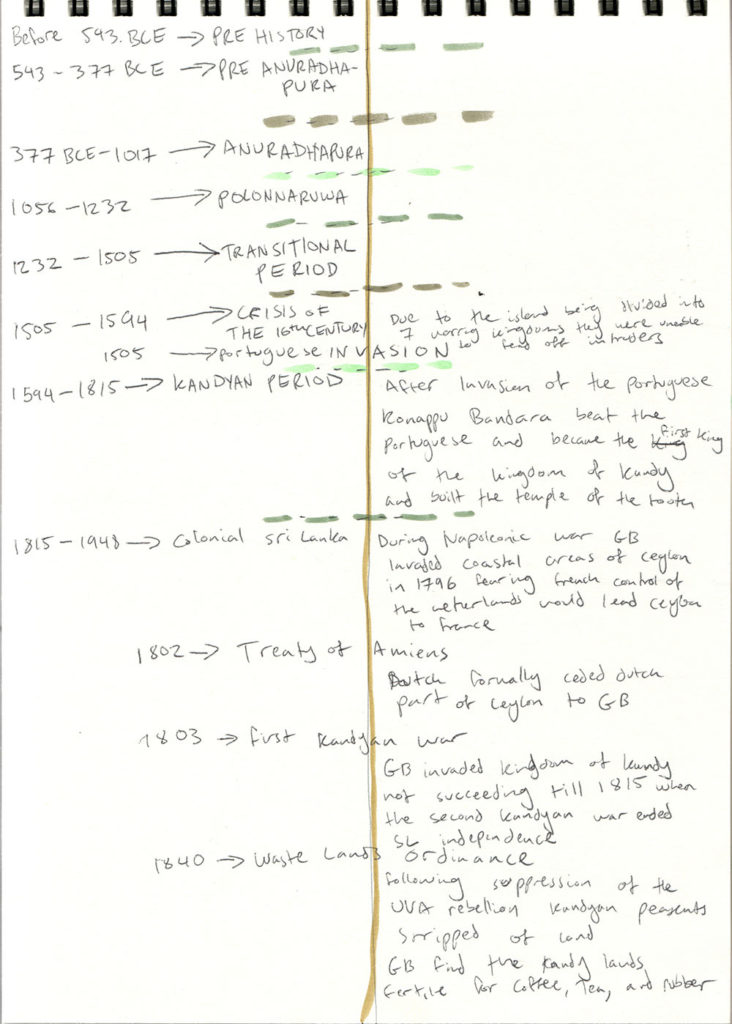 Before 543. BCE → PRE HISTORY
543 - 377 BCE → PRE ANURADHA-
PURA
377 BCE - 1017 → ANURADHAPURA
1056 - 1232 → POLONNARUWA
1232 - 1505 → TRANSITIONAL
PERIOD
1505 - 1594 → CRISIS OF
THE 16th CENTURY
Due to the island being divided into
7 warring kingdoms they were unable
to fend off intruders
1505 → Portuguese INVASION
1594 - 1815 → KANDYAN PERIOD
After Invasion of the portuguese
Konappu Bandara beat the
Portuguese and became the first king
of the kingdom of kandy
and built the temple of the tooth
1815 - 1948 → Colonial Sri Lanka
During Napoleonic war GB
Invaded coastal areas of ceylon
in 1796 fearing french control of
the netherlands would lead ceylon
to France
1802 → Treaty of Amiens
Dutch formally ceded dutch
part of ceylon to GB
1803 → first kandyan war
GB invaded kingdom of kandy
not succeeding till 1815 when
the second kandyan war ended
SL independence
1840 → Waste Lands Ordinance
following suppression of the
UVA rebellion kandyan peasents
stripped of land
GB find the kandy lands
fertile for coffee, Tea, and rubber